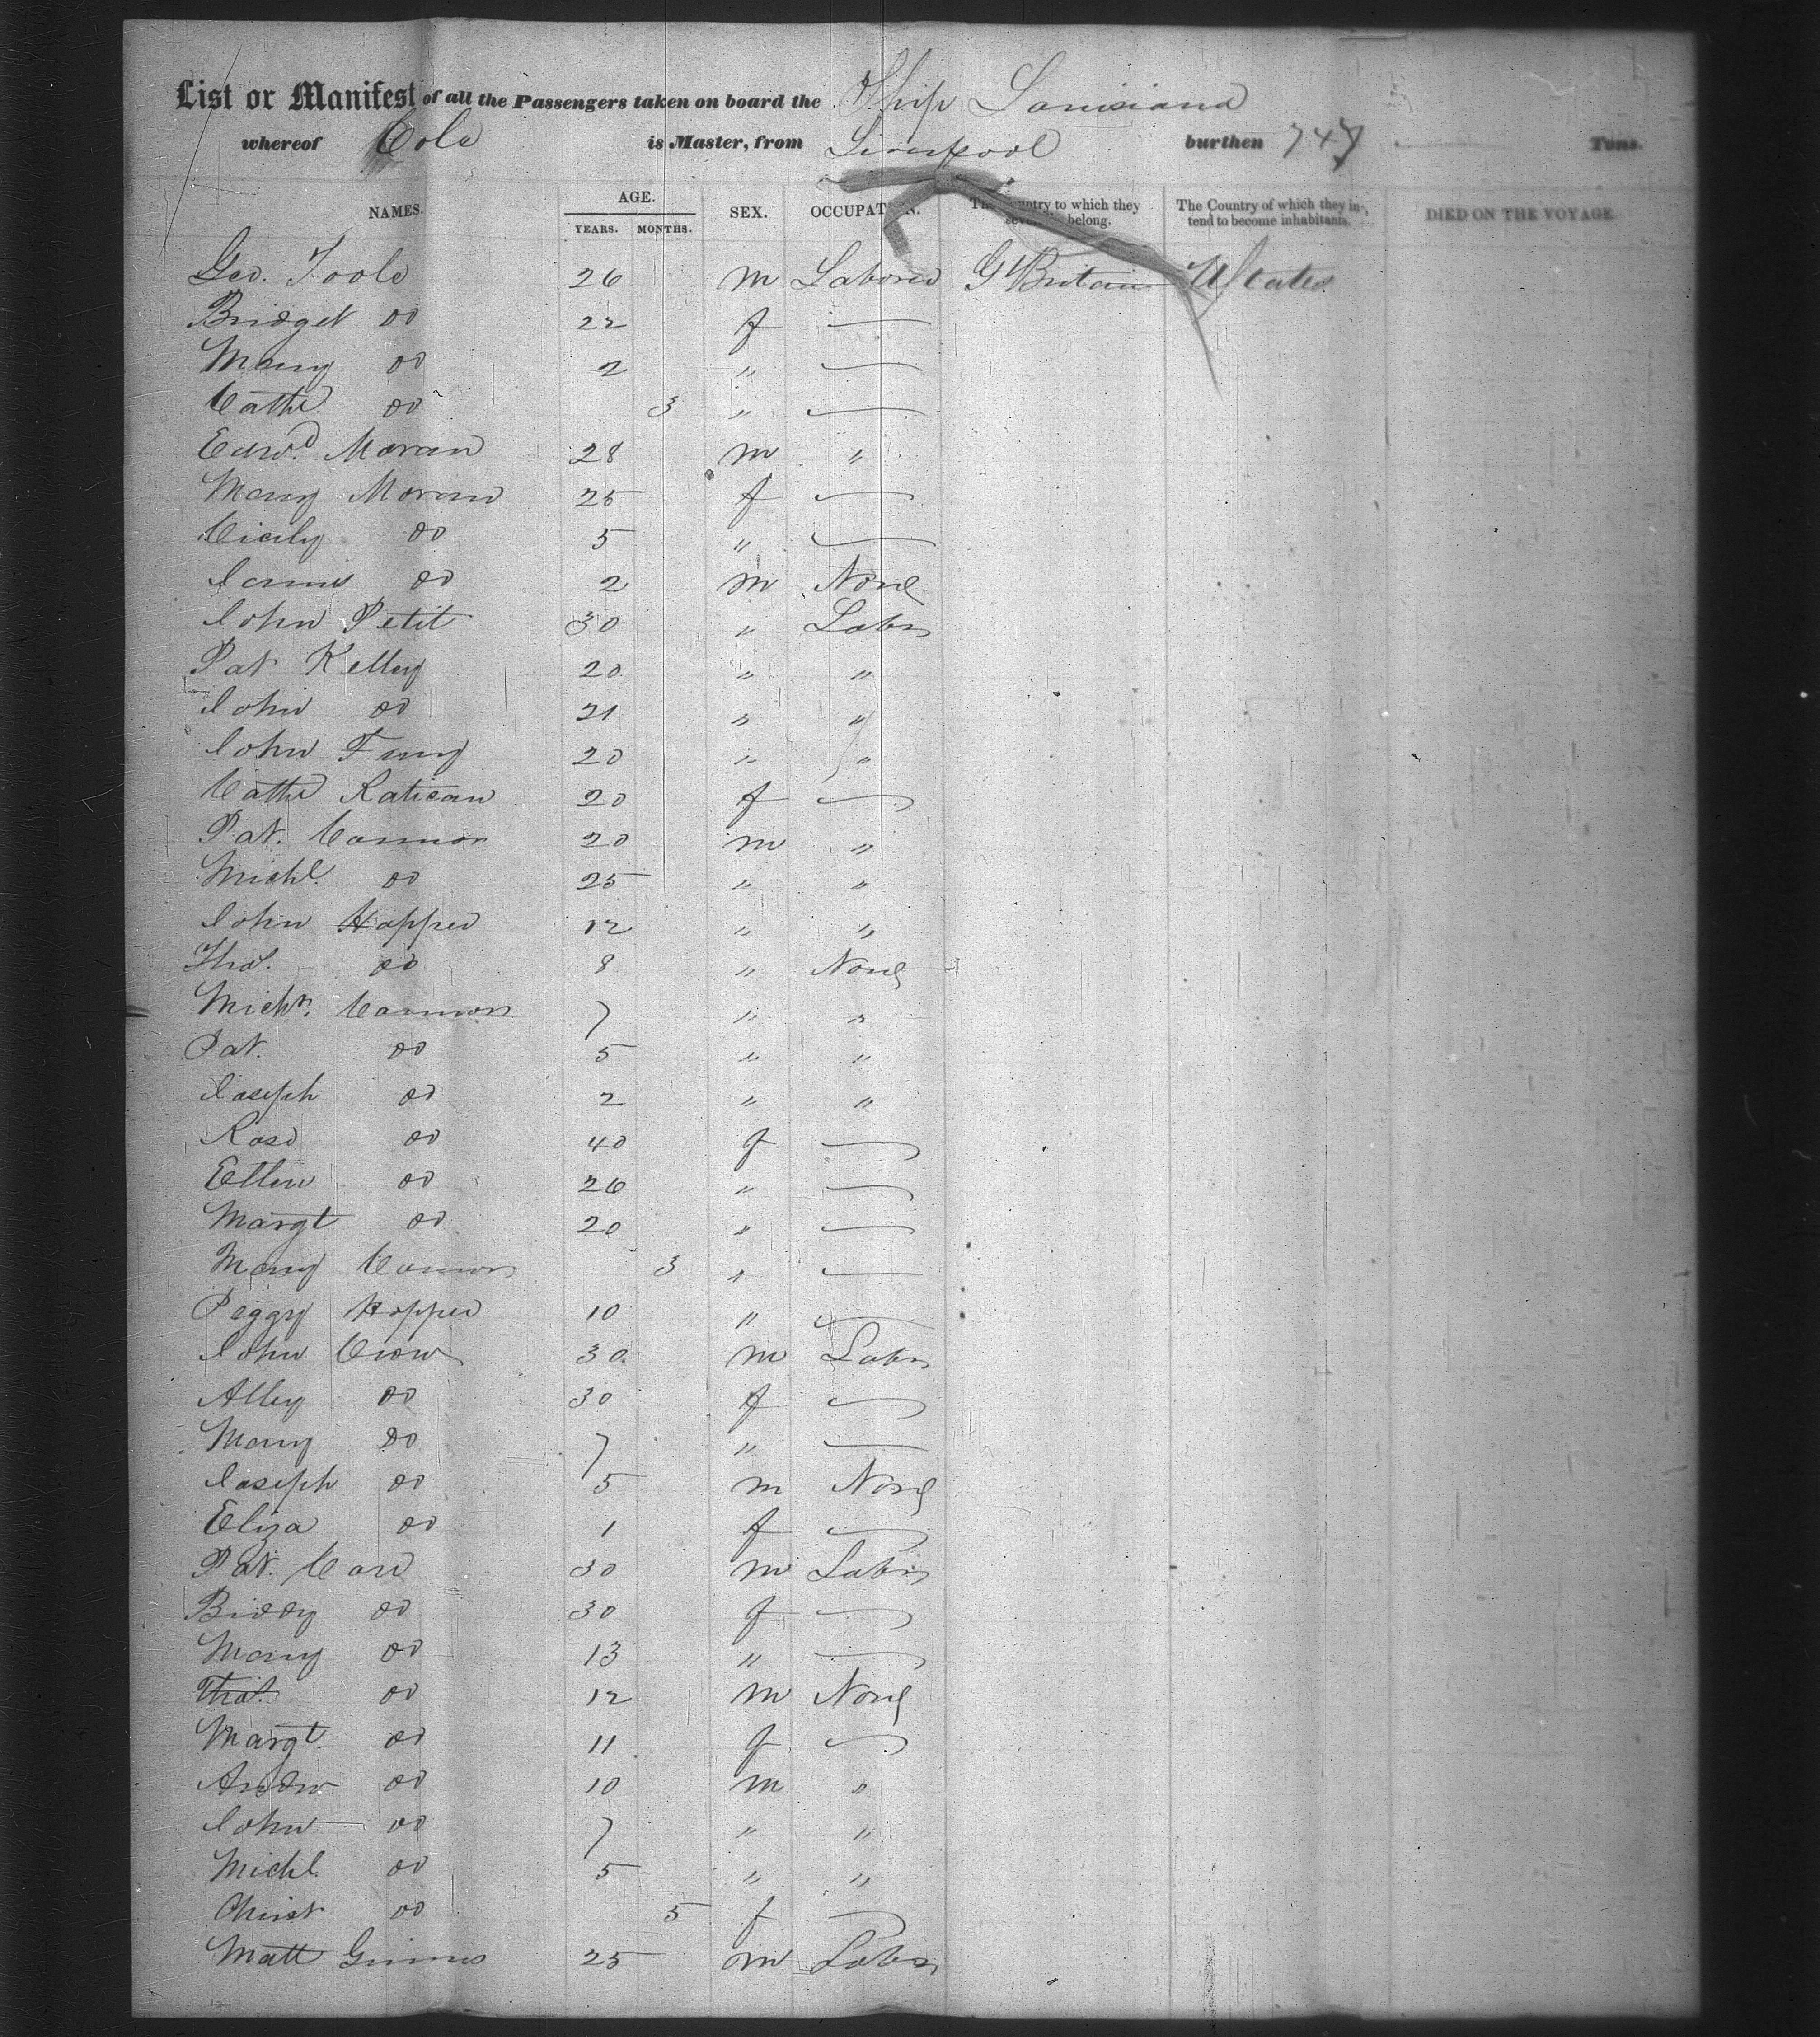 List or Manifest of all the Passengers taken on board the Ship Louisiana
whereof Cole is Master, from Liverpool burthen 747 Tons.
NAMES. AGE. YEARS. MONTHS. SEX. OCCUPATION. The Country to which they severally belong. The Country of which they intend to become inhabitants. DIED ON THE VOYAGE
Geo. Toole 26 m Laborer Gt Britain U States
Bridget do 22 f —
Mary do 2 " —
Cathe do 3 " —
Edwd. Moran 28 m "
Mary Moran 25 f —
Cicily do 5 " —
James do 2 m None
John Petit 30 " Labr
Pat Kelley 20 " "
John do 21 " "
John 20 " "
Cathe Ratican 20 f —
Pat. Connor 20 m "
Michl. do 25 " "
John Hopper 12 " "
Thos. do 8 " None
Michl. Connor 7 " "
Pat. do 5 " "
Joseph do 2 " "
Rose do 40 f —
Ellen do 26 " —
Margt do 20 " —
Mary Connor 3 " —
Peggy Hopper 10 " —
John Crow 30 m Labr
Alley do 30 f —
Mary do 7 " —
Joseph do 5 m None
Eliza do 1 f —
Pat. 30 m Labr
Biddy do 30 f —
Mary do 13 " —
Thos. do 12 m None
Margt. do 11 f —
Andw do 10 m "
John do 7 " "
Michl. do 5 " "
Christ do 5 f —
Matt Grimes 25 m Labr